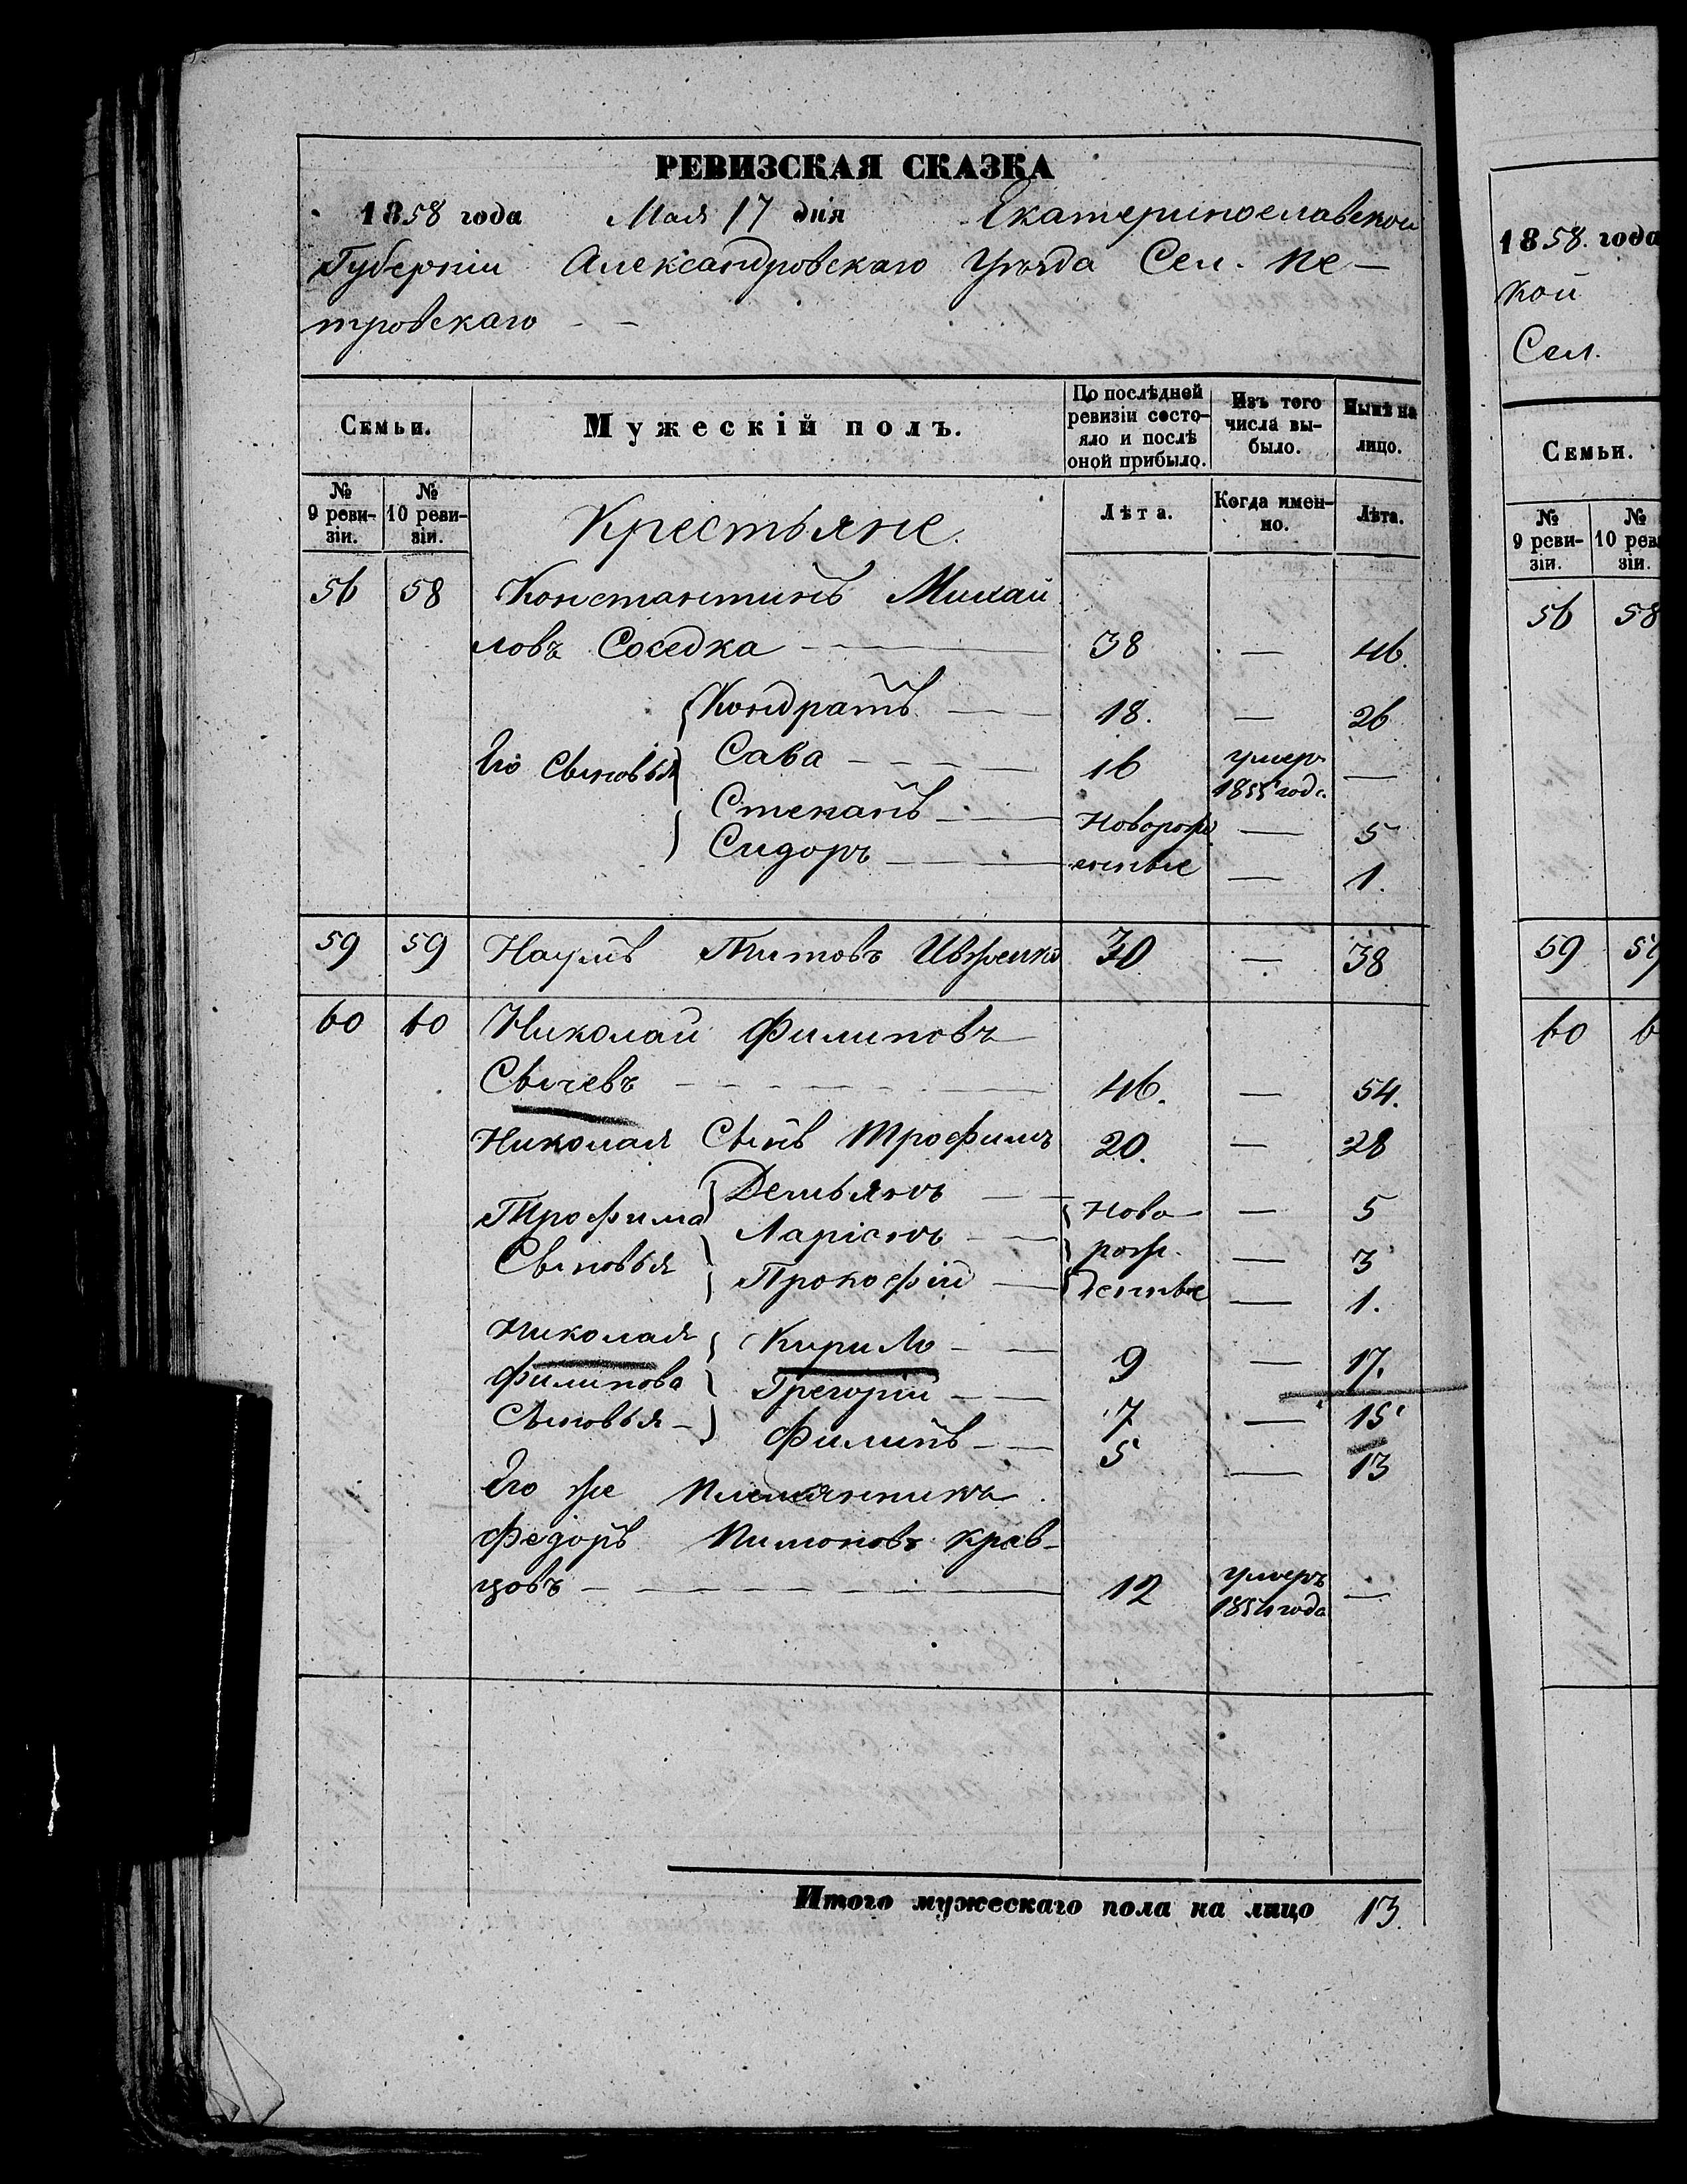 РЕВИЗСКАЯ СКАЗКА
1858 года Мая 17 дня Екатеринославской
Губерніи Александровскаго Уѣзда Сел. Пе-
тровскаго
Семьи.
Мужескій полъ.
По послѣдней ревизіи состо-яло и послѣ оной прибыло.
Изъ того числа вы-было.
Нынѣ на лицо.
№ 9 реви-зіи.
№ 10 реви-зіи.
Крестьяне.
Лѣта.
Когда имен-но.
Лѣта.
56 58 Константинъ Михай
ловъ Соседка 38 — 46.
Кондратъ 18. — 26
Его Сыновья Сава 16 умер. 1855 год. —
Степанъ Новорож — 5
Сидоръ енные — 1.
59 59 Наумъ Титовъ 30 — 38
60 60 Николай Филиповъ
Сычевъ 46. — 54.
Николая Сынъ Трофимъ 20. — 28
Демьянъ Ново — 5
Трофима Ларіонъ рож. — 3
Сыновья Прокофій денные — 1.
Николая Кирило 9 — 17.
Филипова Григорій 7 — 15
Сыновья Филипъ 5 — 13
Его же Племянникъ
Федоръ Пимоновъ Крав-
цовъ 12 умеръ 1854 года —
Итого мужескаго пола на лицо 13.
1858. года
кой
Сел.
Семьи.
№ 9 реви-зіи.
№ 10 реви зіи.
56 58
59 59
60 6